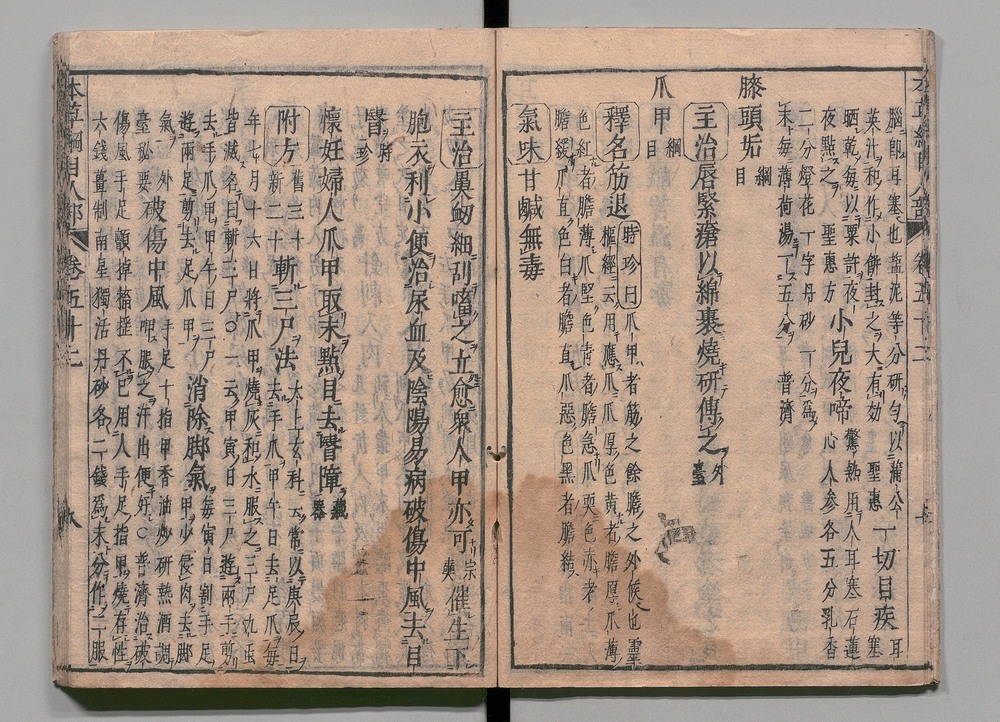 本草綱目人部 卷五十二
腦即耳塞也鹽泥等分研勻以蒲公
英汁和作小餅封之大有効 聖惠 一切目疾 耳塞
晒乾每以粟許夜夜點之 聖惠方 小兒夜啼 驚熱用人耳塞石蓮心人參各五分乳香
二分燈花一字丹砂一分爲
末每薄荷湯下五分 普濟
膝頭垢 綱目
主治脣緊瘡以綿裹燒研傅之 外臺
爪甲 綱目
釋名筋退 時珍曰爪甲者筋之餘膽之外候也靈
樞經云肝應爪爪厚色黃者膽厚爪薄
色紅者膽薄爪堅色靑者膽急爪耎色赤者
膽緩爪直色白者膽直爪惡色黑者膽結
氣味甘鹹無毒
主治鼻衄細刮㗜之立愈衆人甲亦可 宗奭 催生下
胞衣利小便治尿血及陰陽易病破傷中風去目
瞖 時珍
懷妊婦人爪甲取末點目去瞖障 藏器
附方 舊三新二 斬三尸法 太上玄科云常以庚辰日
去手爪甲午日去足爪每
年七月十六日將爪甲燒灰和水服之三尸九蟲
皆滅名曰斬三尸○一云甲寅日三尸遊兩手剪
去手爪甲甲午日三尸
遊兩足剪去足爪甲 消除脚氣 每寅日割手足
甲少侵肉去脚
氣 外臺秘要 破傷中風 手足十指甲香油炒研熱酒調
呷服之汗出便好○普濟治破
傷風手足顫掉搐搖不已用人手足指甲燒存性
六錢薑制南星獨活丹砂各二錢爲末分作二服
本草綱目人部 卷五十二 八